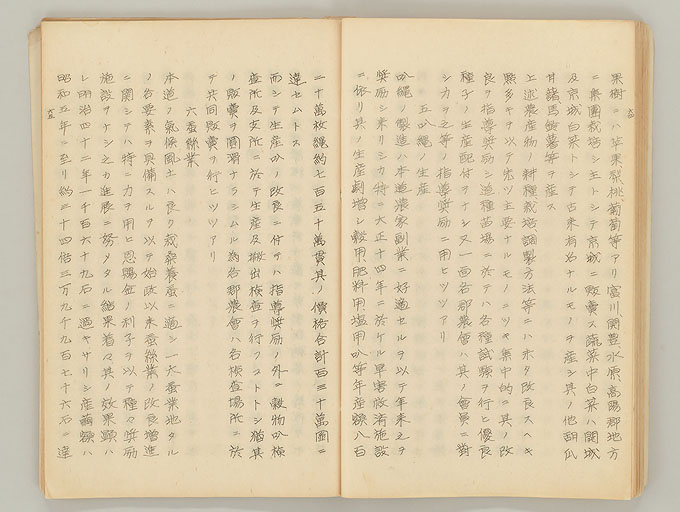 果樹ニハ苹果梨桃葡萄等アリ富川、開豊、水原、高陽郡地方
ニ集團栽培シ主トシテ京城ニ販賣ス蔬菜中白菜ハ開城
及京城白菜トシテ古來有名ナルモノヲ産シ其ノ他胡瓜
甘藷馬鈴薯等ヲ産ス
上述農産物ノ耕種栽培調製方法等ニハホタ改良スヘキ
點多キヲ以テ先ツ主要ナルモノニツキ集中的ニ其ノ改
良ヲ指導奬勵シ道種苗場ニ於テハ各種試驗ヲ行ヒ優良
種子ノ生産配付ヲナシ又一面各郡農會ハ其ノ會員ニ對
シカヲ之等ノ指導奬勵ニ用ヒツツアリ
五叺繩ノ生産
叺繩ノ製造ハ本道農家副業ニ好適セルヲ以テ年來之ヲ
奬勵シ來リシカ特ニ大正十四年ニ於ケル旱害救濟施設
ニ依リ其ノ生産劇増シ穀用肥料用塩用叺等年産額八百
二十萬枚繩約七百五十萬貫其ノ價格合計百三十萬圓ニ
達セムトス
而シテ生産叺ノ改良ニ付テハ指導奬勵ノ外ニ穀物叺檢
査所及支所ニ於テ生産及搬出檢査ヲ行フコトトシ猶其
ノ販賣ヲ圓滑ナラシムル為各郡農會ハ各檢査場所ニ於
テ共同販賣ヲ行ヒツツアリ
六蚕絲業
本道ノ氣候風土ハ良ク栽桑養蚕ニ適シ一大蚕業地タル
ノ各要素ヲ具備スルヲ以テ始政以来蚕絲業ノ改良増進
ニ關シテハ特ニ力ヲ用ヒ恩賜金ノ利子ヲ以テ種々奬勵
施設ヲナシ之カ進展ニ努メタル結果着々其ノ效果顕ハ
レ明治四十二年一千百六十九石ニ過キサリシ産繭額ハ
昭和五年ニ至リ約三十四倍三万九千九百七十六石ニ達